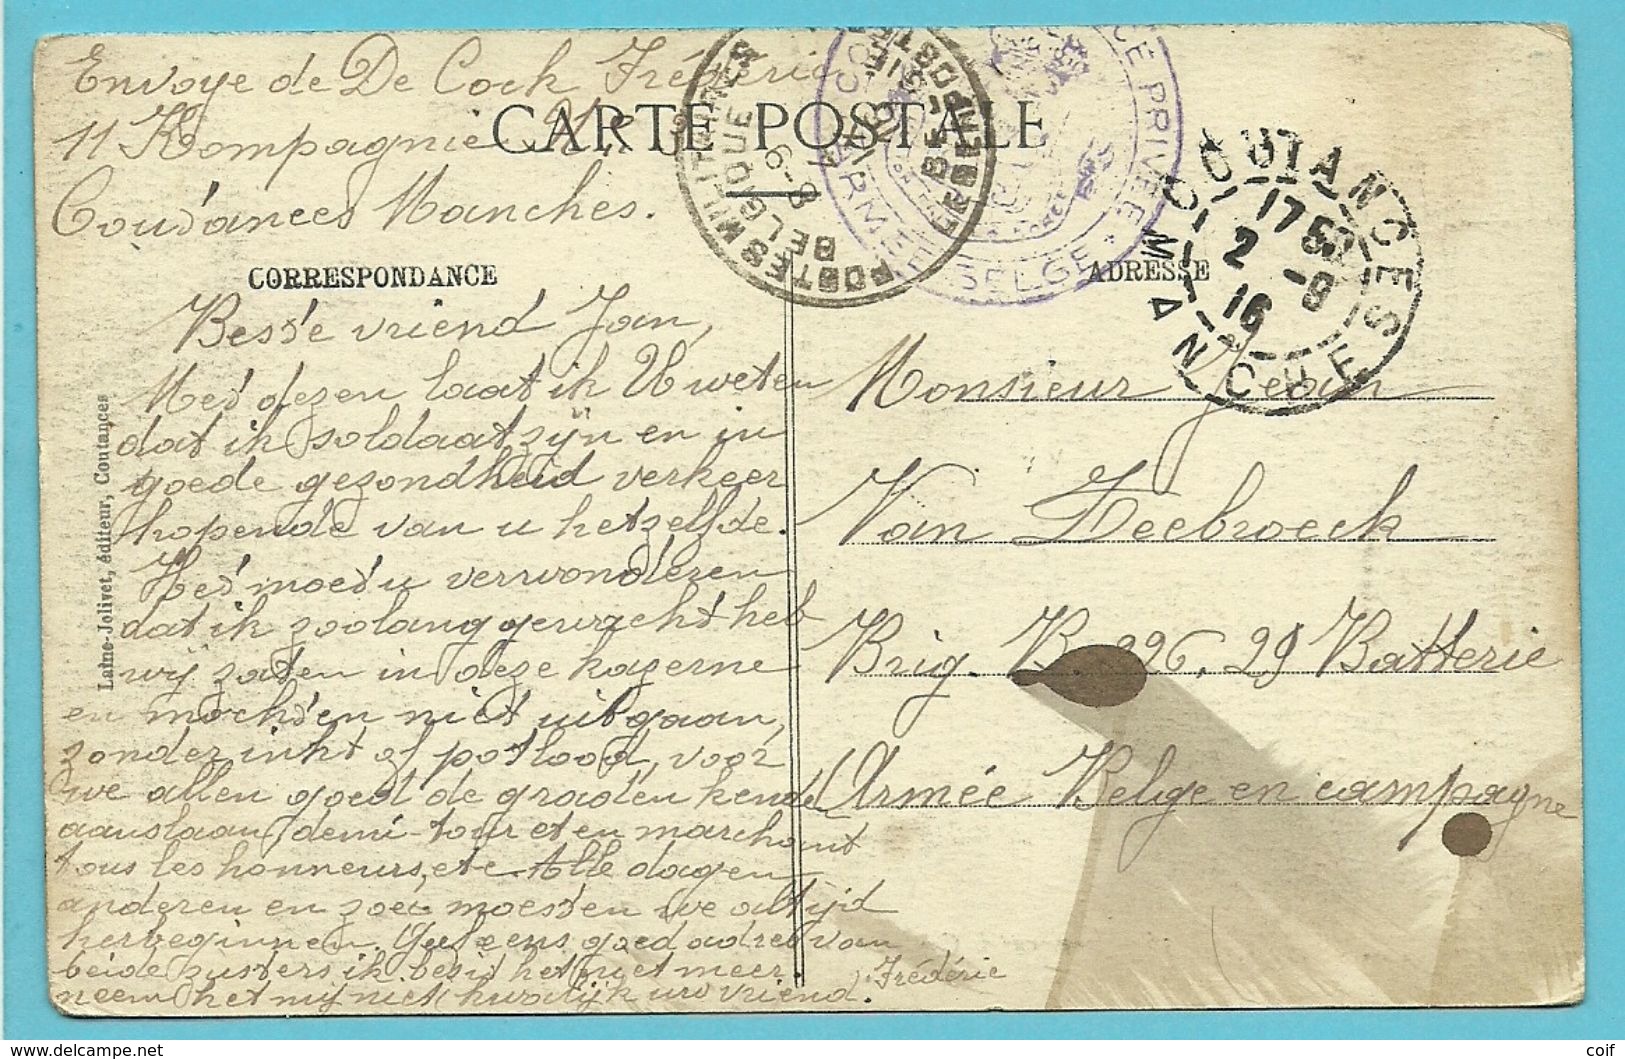 Envoye de De Cock Frédéric
11 Kompagnie
Coutances Manches.
CARTE POSTALE
POSTES MILITAIRES
BELGIQUE
ARMÉE BELGE
COUTANCES
MANCHE
17 50
2 - 9
16
CORRESPONDANCE
ADRESSE
Laine-Jolivet, éditeur, Coutances
Beste vriend Jan,
Met dezen laat ik U weten
dat ik soldaat zijn en in
goede gezondheid verkeer
hopende van u hetzelfde.
Het moet u verwonderen
dat ik zoolang gewacht heb
wij zaten in deze kazerne
en mochten niet uitgaan,
zonder inkt of potlood, voor
we allen goed de graden kende
aanslaan, demi-tour et en marchant
tous les honneurs, etc. Alle dagen
anderen en zoo moesten we altijd
herbeginnen. eens goed adres van
beide zusters ik besit het niet meer.
neem het mij niet kwalijk uw vriend.
Frédéric
Monsieur Jean
Van Zeebroeck
Brig. B 226, 29 Batterie
Armée Belge en campagne